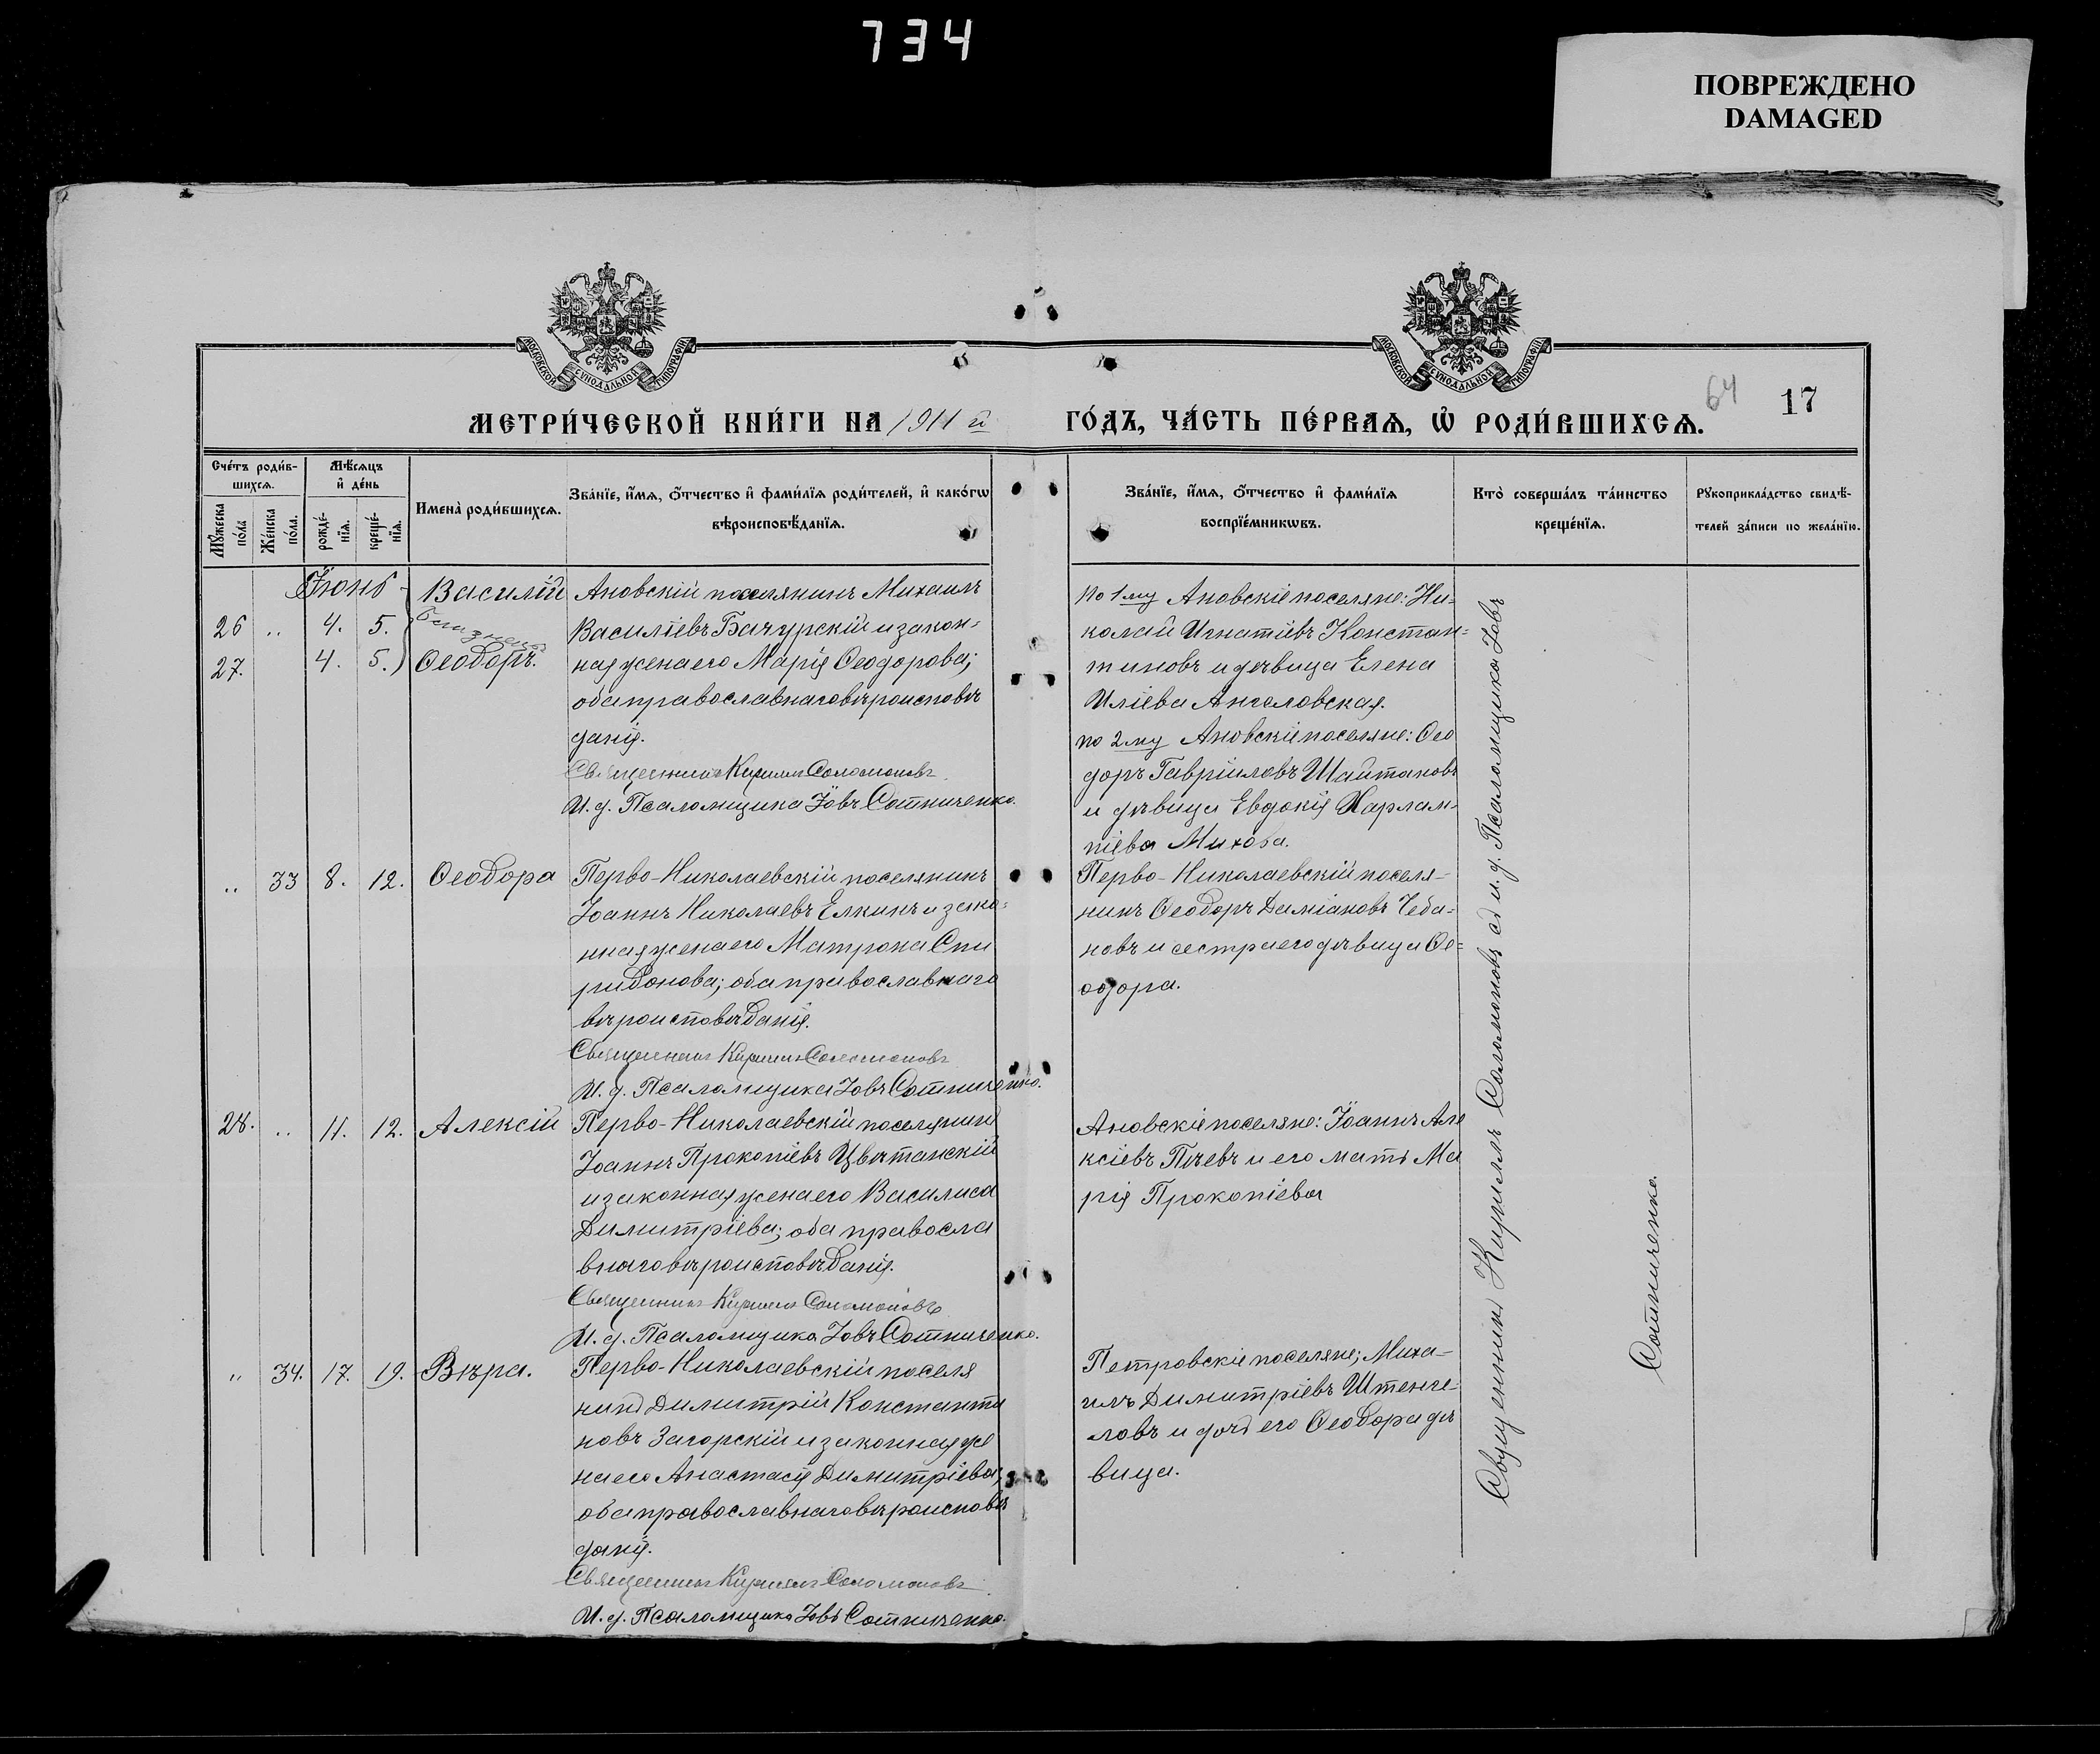 734
ПОВРЕЖДЕНО
DAMAGED
МОСКОВСКОЙ СѴНОДАЛЬНОЙ ТИПОГРАФІИ
МОСКОВСКОЙ СѴНОДАЛЬНОЙ ТИПОГРАФІИ
64
17
МЕТРИ́ЧЕСКОЙ КНИ́ГИ НА 1911 й
ГО́ДЪ, ЧА́СТЬ ПЕ́РВАѦ, Ѡ҆ РОДИ́ВШИХСѦ.
Сче́тъ роди́в-
шихсѧ.
Мѣ́сѧцъ
и҆ де́нь
Мꙋ́жеска
по́ла
Же́нска
по́ла.
рожде́-
нїѧ.
креще́-
нїѧ.
Имена̀ роди́вшихсѧ.
Зва́нїе, и҆́мѧ, ѻ҆́тчество и҆ фами́лїѧ роди́телей, и҆ како́гѡ
вѣроисповѣ́данїѧ.
Зва́нїе, и҆́мѧ, ѻ҆́тчество и҆ фами́лїѧ
воспрїе́мникѡвъ.
Кто̀ соверша́лъ та́инство
креще́нїѧ.
Рꙋкоприкла́дство свидѣ́-
телей за́писи по жела́нїю.
Іюнь
26 „ 4. 5.
27. 4. 5.
Василій
близнецы
Ѳеодоръ.
Ановскій поселянинъ Михаилъ
Василіевъ Бачурскій и закон-
ная жена его Марія Ѳеодорова;
оба православнаго вѣроисповѣ
данія.
Священникъ Кириллъ Соломоновъ
И. д. Псаломщика Іовъ Сотниченко.
по 1му Ановскіе поселяне: Ни-
колай Игнатіевъ Констан-
тиновъ и дѣвица Елена
Иліева Ангеловская.
по 2му Ановскіе поселяне: Ѳео
доръ Гавріиловъ Шайтановъ
и дѣвица Евдокія Харлам-
піева Михова.
„ 33 8. 12. Ѳеодора
Перво-Николаевскій поселянинъ
Іоаннъ Николаевъ Елкинъ и зако-
нная жена его Матрона Спи
ридонова; оба православнаго
вѣроисповѣданія.
Священникъ Кириллъ Соломоновъ
И. д. Псаломщика Іовъ Сотниченко.
Перво-Николаевскій поселя-
нинъ Ѳеодоръ Даміановъ Чеба-
новъ и сестра его дѣвица Ѳе-
одора.
28. „ 11. 12. Алексій
Перво-Николаевскій поселянинъ
Іоаннъ Прокопіевъ Цвѣтанскій
и законная жена его Василиса
Димитріева; оба правосла
внаго вѣроисповѣданія.
Священникъ Кириллъ Соломоновъ
И. д. Псаломщика Іовъ Сотниченко.
Ановскіе поселяне: Іоаннъ Але
ксіевъ Пѣевъ и его мать Ма
рія Прокопіева
„ 34. 17. 19. Вѣра.
Перво-Николаевскій поселя
нинъ Димитрій Константи
новъ Загорскій и законная же
на его Анастасія Димитріева;
оба православнаго вѣроисповѣ
данія.
Священникъ Кириллъ Соломоновъ
И. д. Псаломщика Іовъ Сотниченко.
Петровскіе поселяне; Миха-
илъ Димитріевъ Штенге-
ловъ и дочь его Ѳеодора дѣ
вица.
Священникъ Кириллъ Соломоновъ съ и. д. Псаломщика Іовъ
Сотниченко.